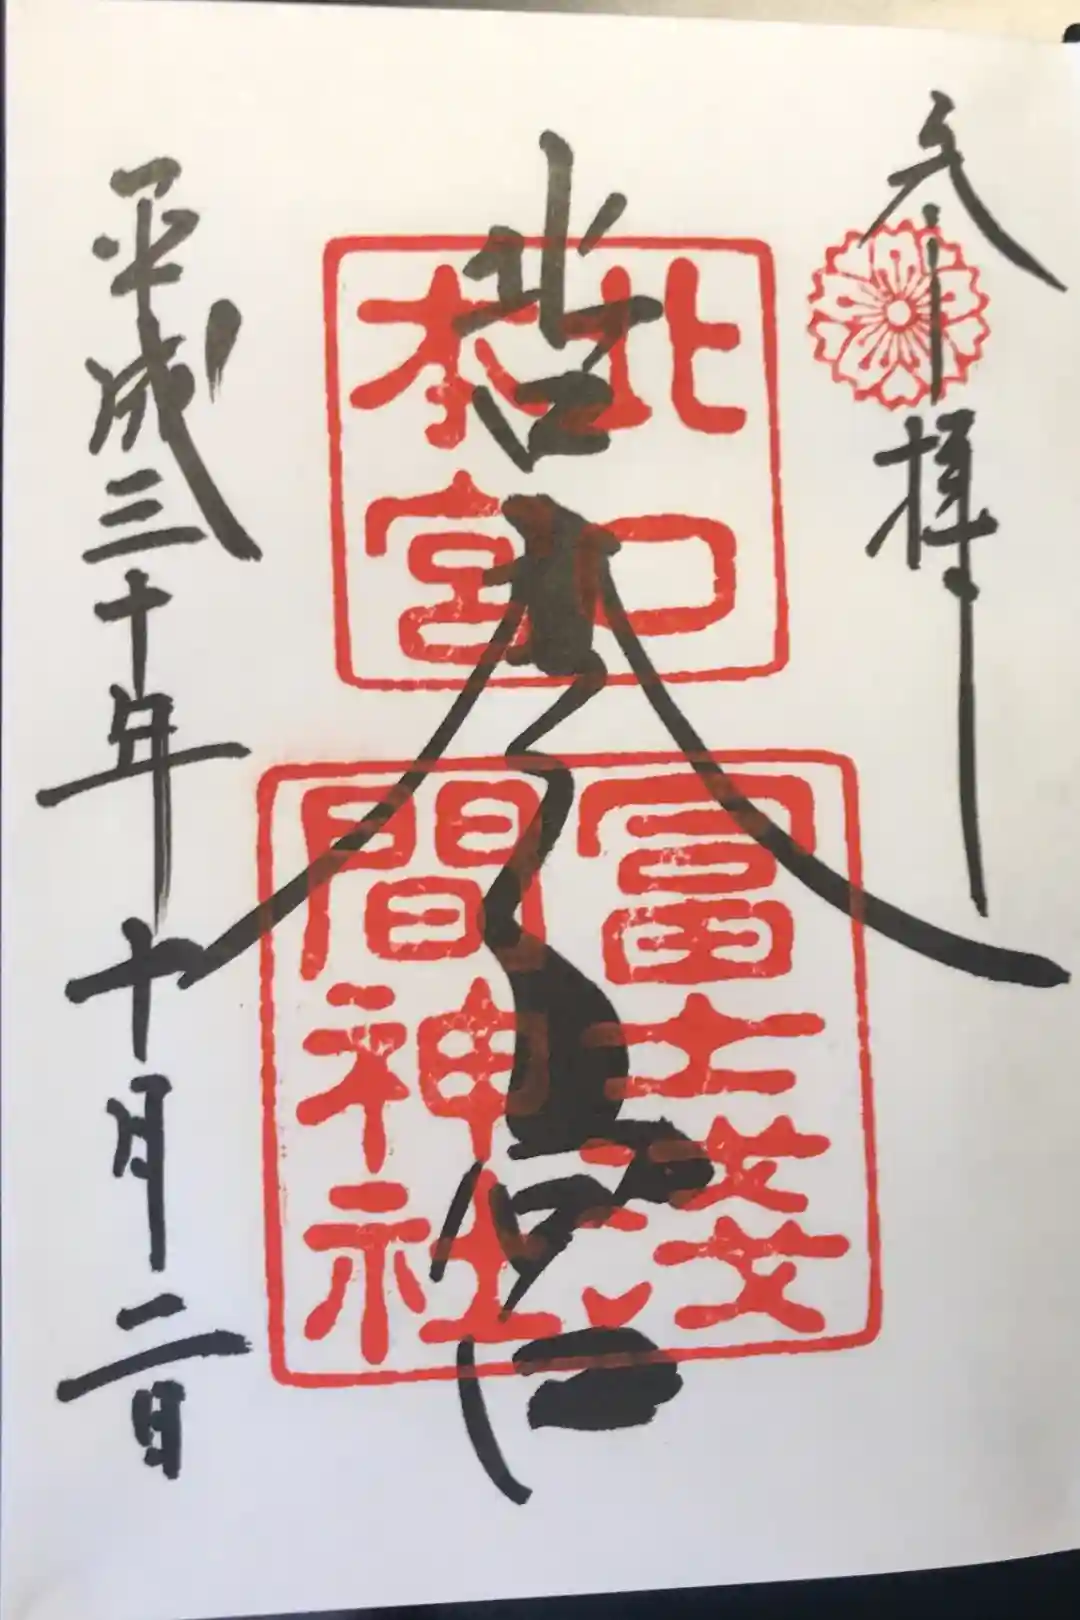 奉拝
北口本宮
北口
本宮
冨士淺
間神社
平成三十年十月二日